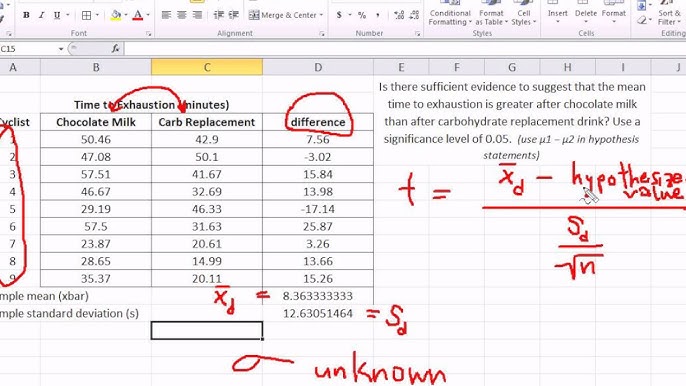 Merge & Center
$ % ,
Conditional Formatting
Format as Table
Cell Styles
Insert
Delete
Format
C15
fx
A B C D E F G H I J
Time to Exhaustion (minutes)
Cyclist Chocolate Milk Carb Replacement difference
1 50.46 42.9 7.56
2 47.08 50.1 -3.02
3 57.51 41.67 15.84
4 46.67 32.69 13.98
5 29.19 46.33 -17.14
6 57.5 31.63 25.87
7 23.87 20.61 3.26
8 28.65 14.99 13.66
9 35.37 20.11 15.26
mple mean (xbar) x̄d = 8.363333333
mple standard deviation (s) 12.63051464 = Sd
σ unknown
Is there sufficient evidence to suggest that the mean
time to exhaustion is greater after chocolate milk
than after carbohydrate replacement drink? Use a
significance level of 0.05. (use μ1 – μ2 in hypothesis
statements)
t = x̄d - hypothesize
value
Sd
√n